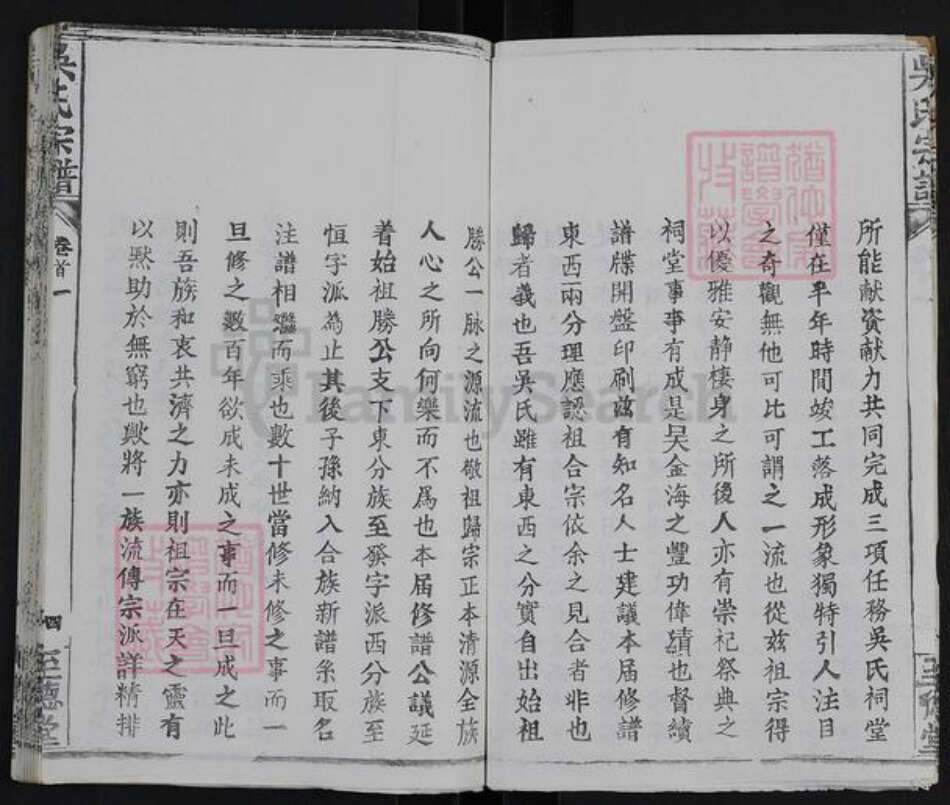 吳氏宗譜
所能献资献力共同完成三項任務吳氏祠堂
僅在半年時間竣工落成形象獨特引人注目
之奇觀無他可比可謂之一流也從兹祖宗得
以優雅安静棲身之所後人亦有崇祀祭典之
祠堂事事有成是吴金海之豐功偉績也督續
譜牒開盤印刷兹有知名人士建議本届修譜
東西兩分理應認祖合宗依余之見合者非也
歸者義也吾吳氏雖有東西之分實自出始祖
勝公一脉之源流也敬祖歸宗正本清源全族
人心之所向何樂而不為也本届修譜公議延
着始祖勝公支下東分族至發字派西分族至
恒字派為止其後子孫納入合族新譜糸取名
注譜相繼而乘也數十世當修未修之事而一
旦修之數百年欲成未成之事而一旦成之此
則吾族和衷共濟之力亦則祖宗在天之靈有
以默助於無窮也歟將一族流傳宗派詳精排
吳氏宗譜
卷首一
四
至德堂
FamilySearch